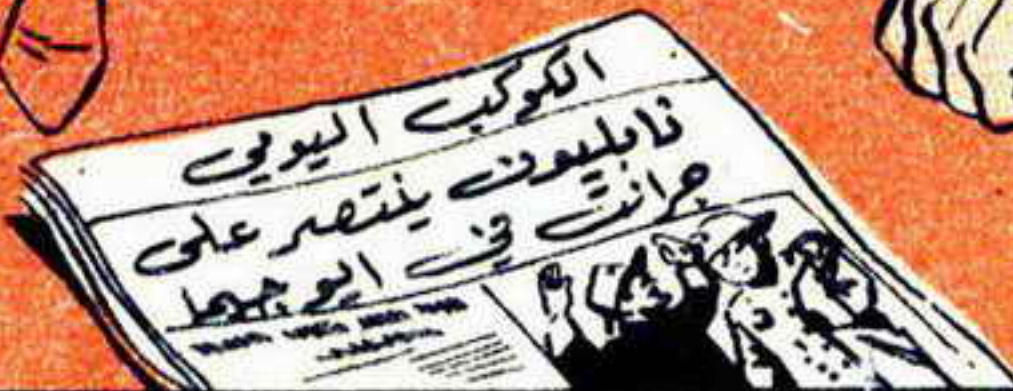 الكوكب اليومي
نابليون ينتصر على
جرانت في ايوجيما